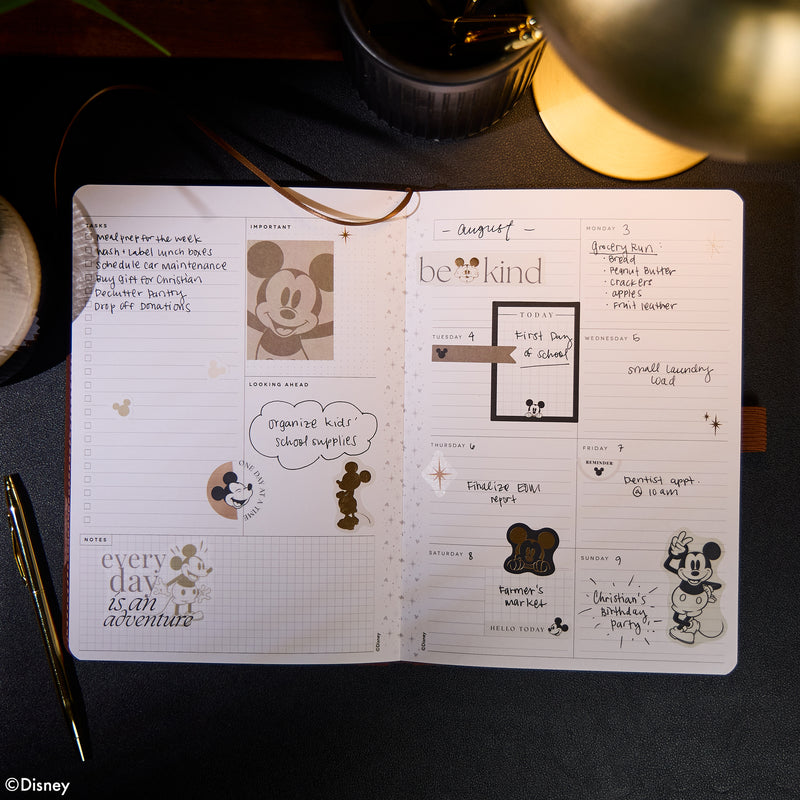 TASKS
Meal prep for the week
Wash + Label lunch boxes
Schedule car maintenance
Buy gift for Christian
Declutter Pantry
Drop off Donations
IMPORTANT
LOOKING AHEAD
organize kids'
school supplies
ONE DAY AT A TIME
NOTES
every
day
is an
adventure
©Disney
- August -
be kind
MONDAY 3
Grocery Run:
· Bread
· Peanut Butter
· Crackers
· apples
· Fruit leather
TUESDAY 4
TODAY
First Day
of school
WEDNESDAY 5
small laundry
load
THURSDAY 6
Finalize EOM
report
FRIDAY 7
REMINDER
Dentist appt.
@ 10 am
SATURDAY 8
Farmer's
market
HELLO TODAY
SUNDAY 9
Christian's
Birthday
party
©Disney
©Disney